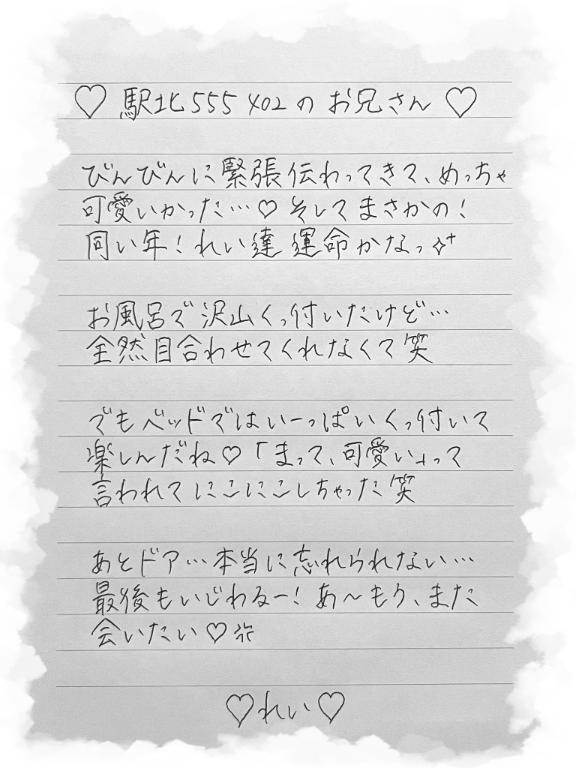 ♡ 駅北555 402の お兄さん ♡
びんびんに緊張伝わってきて、めっちゃ
可愛いかった…♡ そしてまさかの!
同い年!れい達運命かなっ✧⁺
お風呂で沢山くっ付いたけど…
全然目合わせてくれなくて笑
でもベッドではいーっぱいくっ付いて
楽しんだね♡「まって、可愛い」って
言われてにこにこしちゃった笑
あとドア…本当に忘れられない…
最後もいじわるー!あ〜もう、また
会いたい♡
♡れい♡